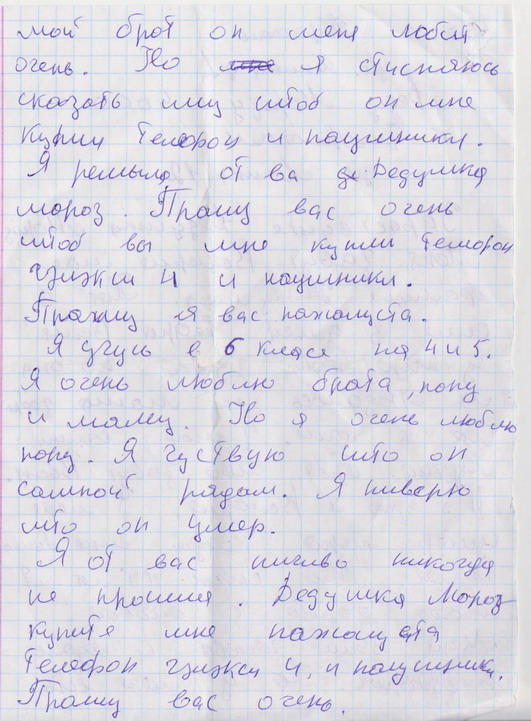 мой брат он мене любит
очень. Но мне я стисняюсь
сказать иму штоб он мне
купил телефон и наушники.
Я решыла от ва де Дедушка
мороз. Прашу вас очень
штоб вы мне купили телефон
гэлэкси 4 и наушники.
Прашу я вас пажалуста.
Я учусь в 6 класе на 4 и 5.
Я очень люблю брата, папу
и маму. Но я очень люблю
папу. Я чуствую што он
самной рядам. Я ниверю
што он умер.
Я от вас ничиво никогда
не прашила. Дедушка Мороз
купите мне пажалуста
телефон гэлэкси 4, и наушники.
Прашу вас очень.